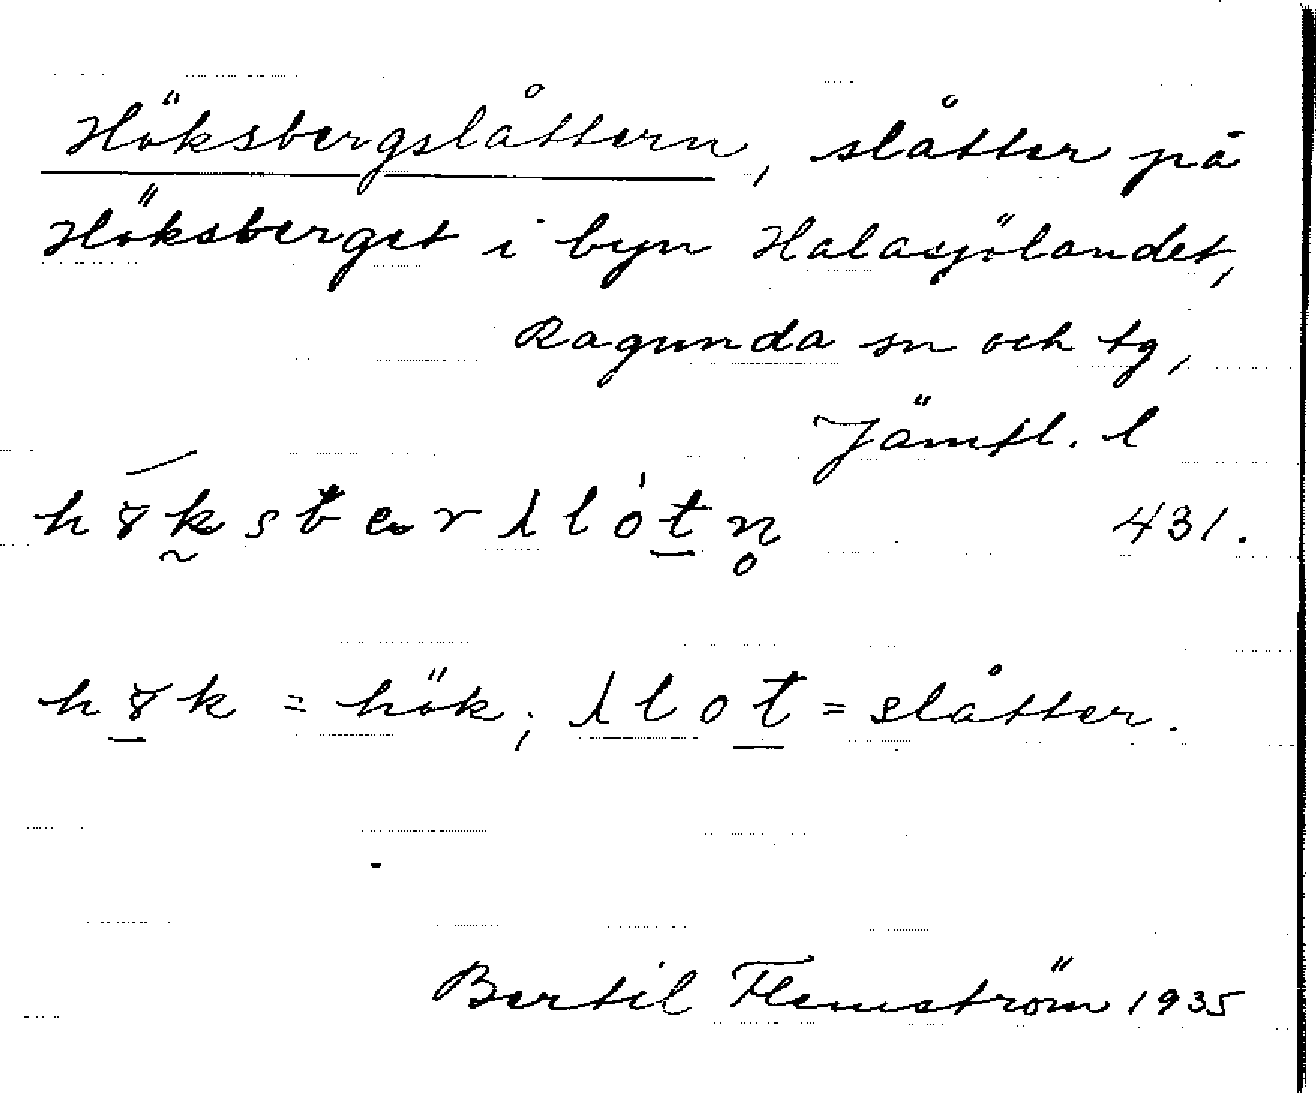 Höksbergslåttern, slåtter på
Höksberget i byn Halasjölandet,
Ragunda sn och tg,
Jämtl. l
431.
= hök; = slåtter.
Bertil Flemström 1935